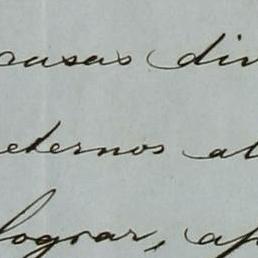 causas div
eternos at
lograr, ap